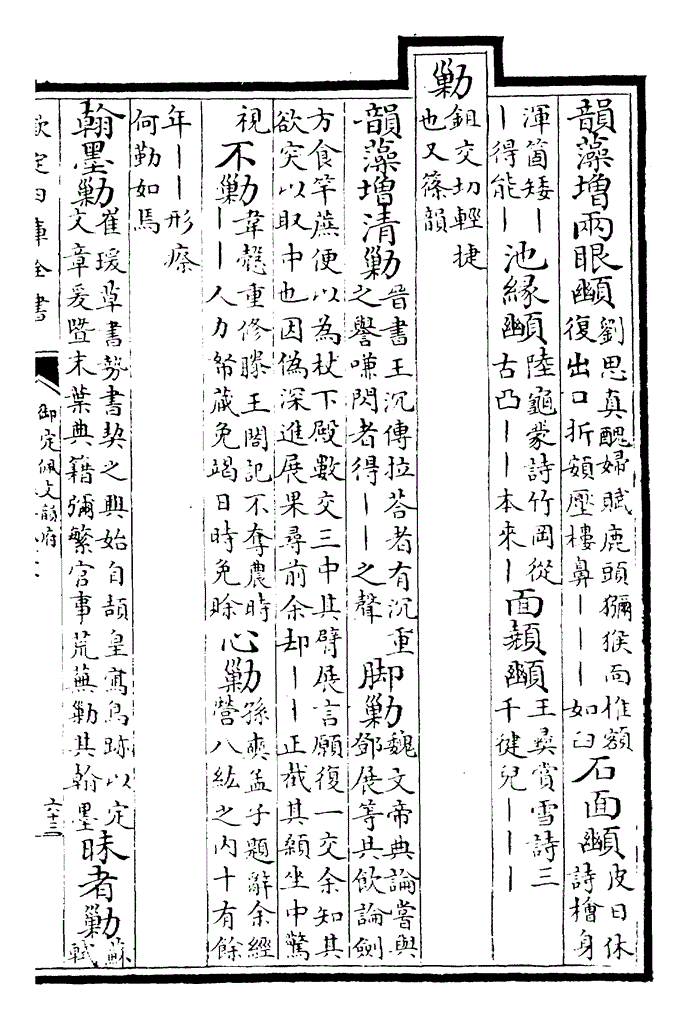 韻藻增兩眼䫜劉思真醜婦賦鹿頭獼猴面椎額
復出口折頞壓樓鼻丨丨丨如臼石面䫜皮日休
詩檜身
渾箇矮丨
丨得能丨池緣䫜陸龜蒙詩竹岡從
古凸丨丨本來丨面䫜王彝賞雪詩三
千健兒丨丨丨
勦鉏交切輕捷
也又篠韻
韻藻增清勦晉書王沉傳拉荅者有沉重
之譽嗛閃者得丨丨之聲脚勦魏文帝典論嘗與
鄧展等共飲論劍
方食芉蔗便以為杖下殿數交三中其臂展言願復一交余知其
欲突以取中也因偽深進展果尋前余却丨丨正截其顙坐中驚
視不勦韋慤重修滕王閣記不奪農時
丨丨人力帑藏免竭日時免賖心勦孫奭孟子題辭余經
營八紘之内十有餘
年丨丨形瘵
何勤如焉
翰墨勦崔瑗草書勢書契之興始自頡皇寫鳥跡以定
文章爰暨末葉典籍彌繁官事荒蕪勦其翰墨昧者勦蘇
軾
欽定四庫全書
御定佩文韻府
六十三